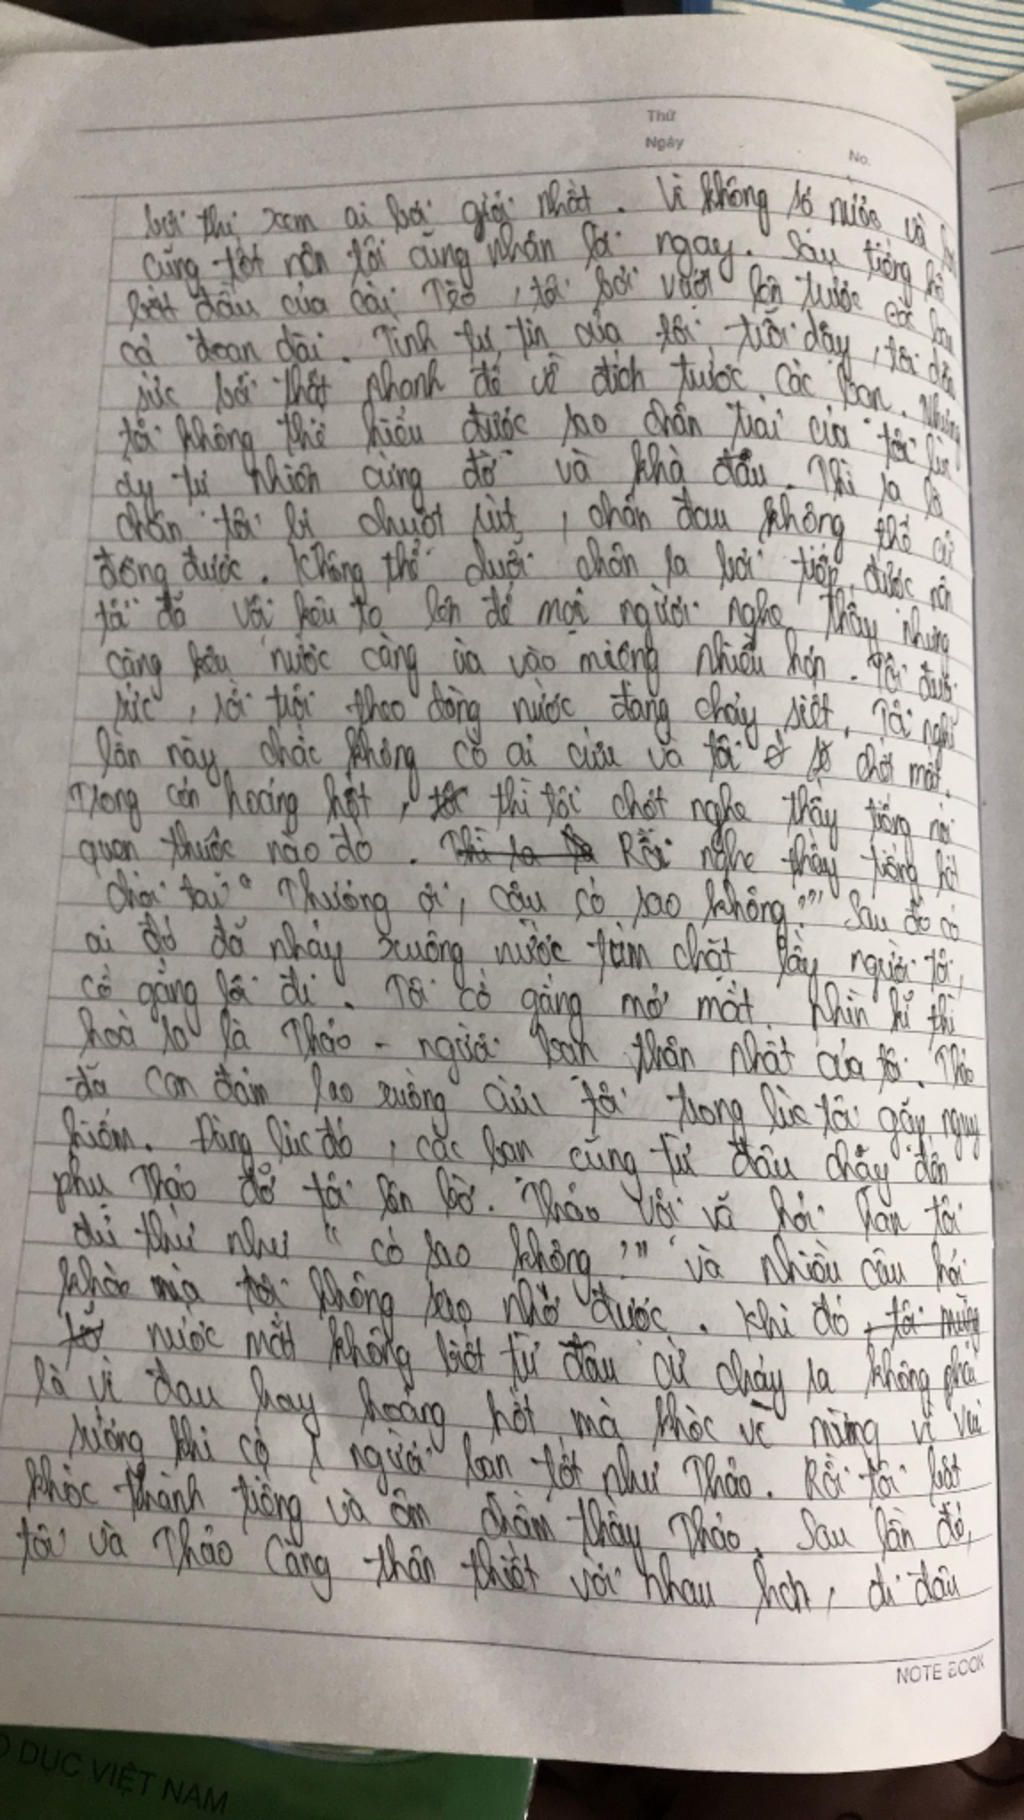 Thứ
Ngày
No.
bơi thi xem ai bơi giỏi nhất. Vì không sợ nước và bơi
cũng tốt nên tôi cũng nhận lời ngay. Sau tiếng hô
bắt đầu của cái Tèo, tôi bơi vượt lên trước các bạn
cả đoạn dài. Tính tự tin của tôi trỗi dậy, tôi dồn
sức bơi thật nhanh để về đích trước các bạn. Nhưng
tôi không thể hiểu được sao chân trái của tôi lúc
ấy tự nhiên cứng đờ và khá đau. Thì ra là
chân tôi bị chuột rút, chân đau không thể cử
động được. Không thể duỗi chân ra bơi tiếp được nên
tôi đã vội kêu to lên để mọi người nghe thấy nhưng
càng kêu nước càng ùa vào miệng nhiều hơn. Tôi đuối
sức, rồi trôi theo dòng nước đang chảy siết. Tôi nghĩ
lần này chắc không có ai cứu và tôi sẽ chết mất.
Trong cơn hoảng hốt, thì tôi chợt nghe thấy tiếng nói
quen thuộc nào đó. Thì ra là Rồi nghe thấy tiếng hét
chói tai " Thương ơi, cậu có sao không?" Sau đó có
ai đó đã nhảy xuống nước tóm chặt lấy người tôi,
cố gắng lôi đi. Tôi cố gắng mở mắt nhìn kĩ thì
hoá ra là Thảo - người bạn thân nhất của tôi. Thảo
đã can đảm lao xuống cứu tôi trong lúc tôi gặp nguy
hiểm. Đúng lúc đó, các bạn cũng từ đâu chạy đến
phụ Thảo đỡ tôi lên bờ. Thảo vội vã hỏi han tôi
đủ thứ như " có sao không?" và nhiều câu hỏi
khác mà tôi không sao nhớ được. Khi đó, tôi mừng
nước mắt không biết từ đâu cứ chảy ra không phải
là vì đau hay hoảng hốt mà khóc vì mừng vì vui
sướng khi có 1 người bạn tốt như Thảo. Rồi tôi bật
khóc thành tiếng và ôm chầm thấy Thảo. Sau lần đó,
tôi và Thảo càng thân thiết với nhau hơn, đi đâu
NOTE BOOK
DỤC VIỆT NAM